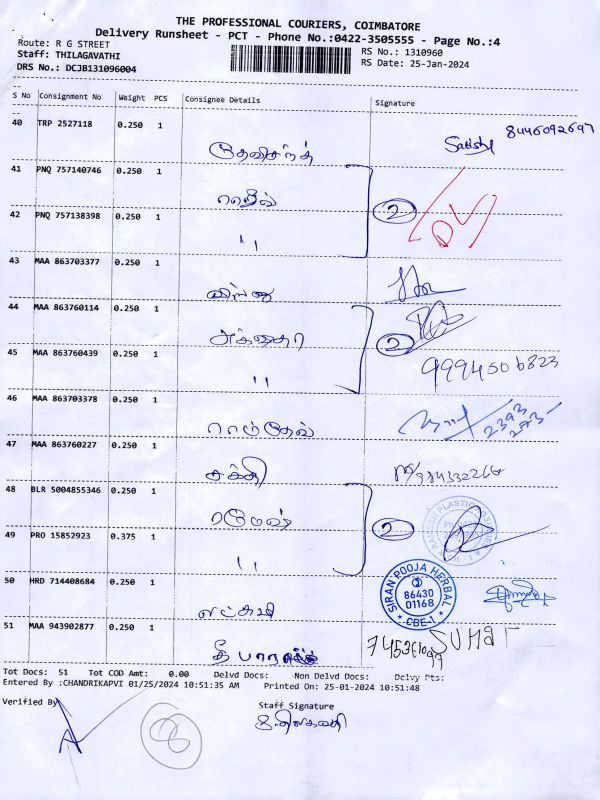 THE PROFESSIONAL COURIERS, COIMBATORE
Delivery Runsheet - PCT - Phone No.:0422-3505555 - Page No.:4
Route: R G STREET
RS No.: 1310960
Staff: THILAGAVATHI
RS Date: 25-Jan-2024
DRS No.: DCJB131096004
S No Consignment No Weight PCS Consignee Details Signature
40 TRP 2527118 0.250 1
8446092697
41 PNQ 757140746 0.250 1
2
42 PNQ 757138398 0.250 1 "
43 MAA 863703377 0.250 1
44 MAA 863760114 0.250 1
2
45 MAA 863760439 0.250 1 " 9994506323
46 MAA 863703378 0.250 1 ராம்தேவ்
47 MAA 863760227 0.250 1 சக்தி
48 BLR 5004855346 0.250 1 ரமேஷ்
2
49 PRO 15852923 0.375 1 "
50 HRD 714408684 0.250 1
SIRAN POOJA HERBAL
86430
01168
CBE-1
51 MAA 943902877 0.250 1
Tot Docs: 51 Tot COD Amt: 0.00 Delvd Docs: Non Delvd Docs: Delvy Pts:
Entered By :CHANDRIKAPVI 01/25/2024 10:51:35 AM Printed On: 25-01-2024 10:51:48
Verified By
Staff Signature